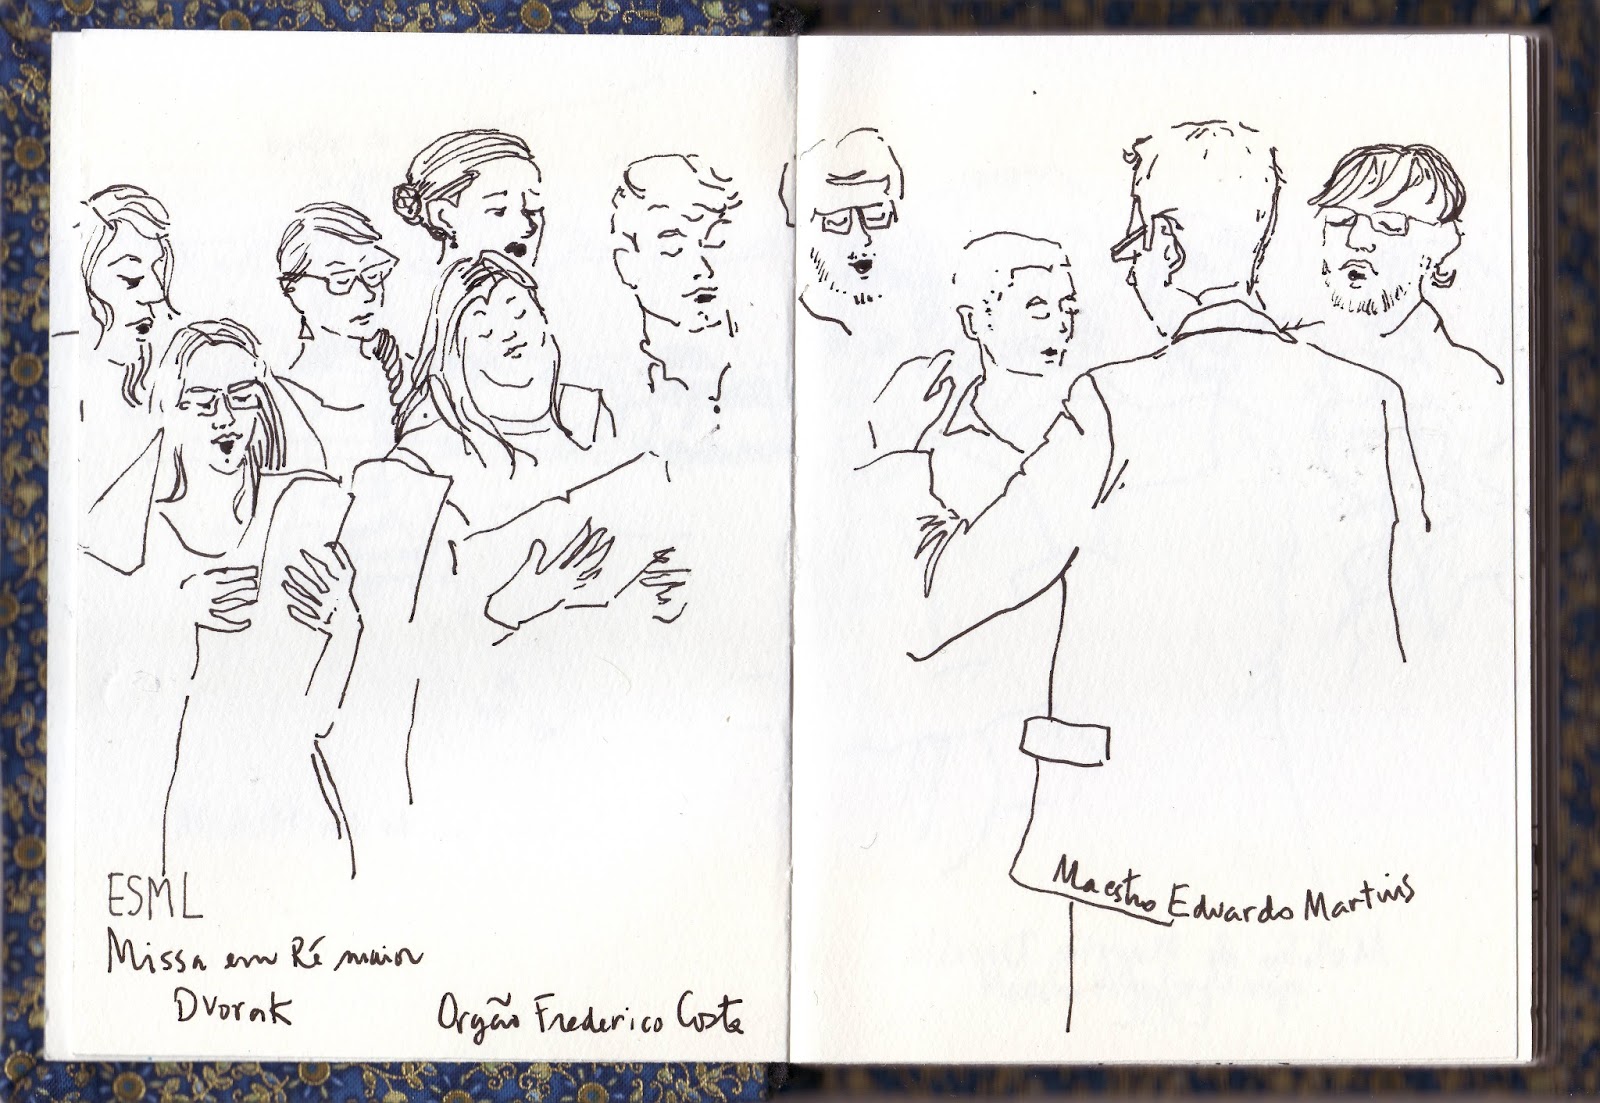 ESML
Missa em Ré maior
Dvorak
Orgão Frederico Costa
Maestro Eduardo Martins